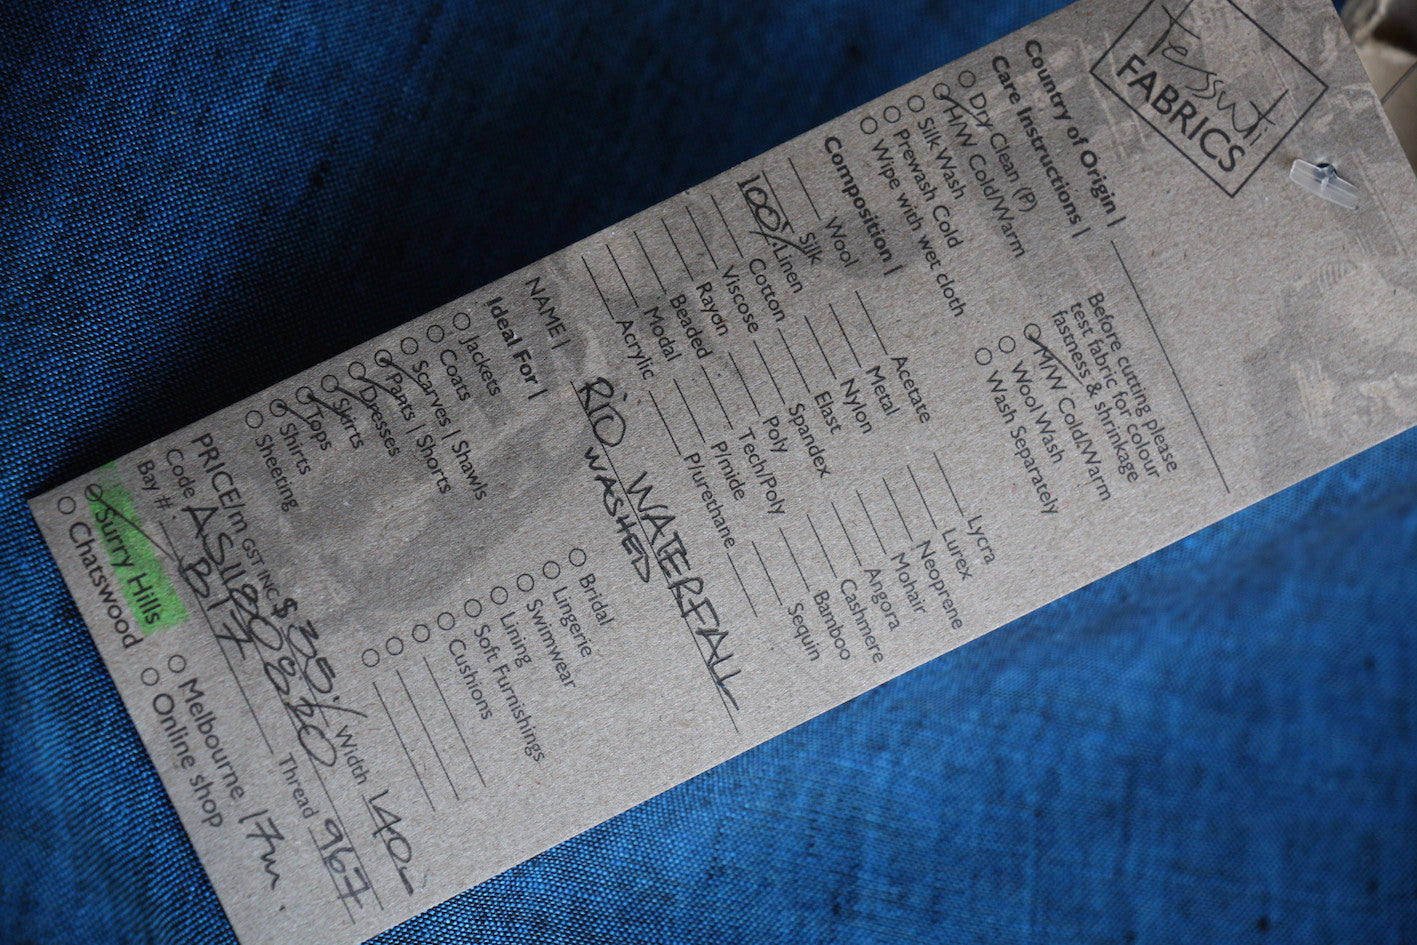 tessuti
FABRICS
Country of Origin |
Care Instructions |
Dry Clean (P)
H/W Cold/Warm
Silk Wash
Prewash Cold
Wipe with wet cloth
Before cutting please
test fabric for colour
fastness & shrinkage
M/W Cold/Warm
Wool Wash
Wash Separately
Composition |
Wool
Silk
100% Linen
Cotton
Viscose
Rayon
Beaded
Modal
Acrylic
Acetate
Metal
Nylon
Elast
Spandex
Poly
Tech/Poly
P/mide
P/urethane
Lycra
Lurex
Neoprene
Mohair
Angora
Cashmere
Bamboo
Sequin
NAME | RIO WATERFALL
WASHED
Ideal For |
Jackets
Coats
Scarves | Shawls
Pants | Shorts
Dresses
Skirts
Tops
Shirts
Sheeting
Bridal
Lingerie
Swimwear
Lining
Soft Furnishings
Cushions
PRICE/m GST INC $ 35/ Width 140
Code Thread 967
Bay # B17
Surry Hills
Chatswood
Melbourne
Online shop
17m